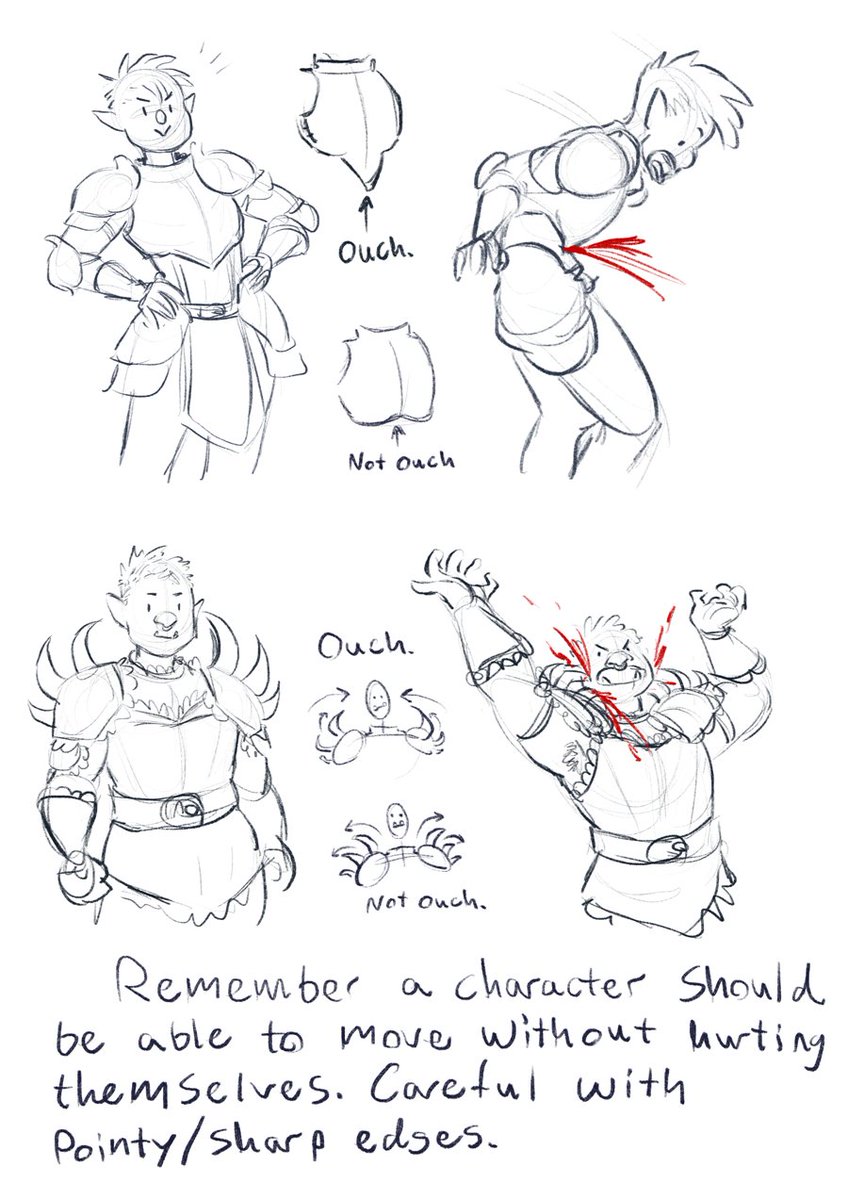 Ouch.
Not Ouch
Ouch.
Not Ouch.
Remember a character should
be able to move without hurting
themselves. Careful with
Pointy/sharp edges.